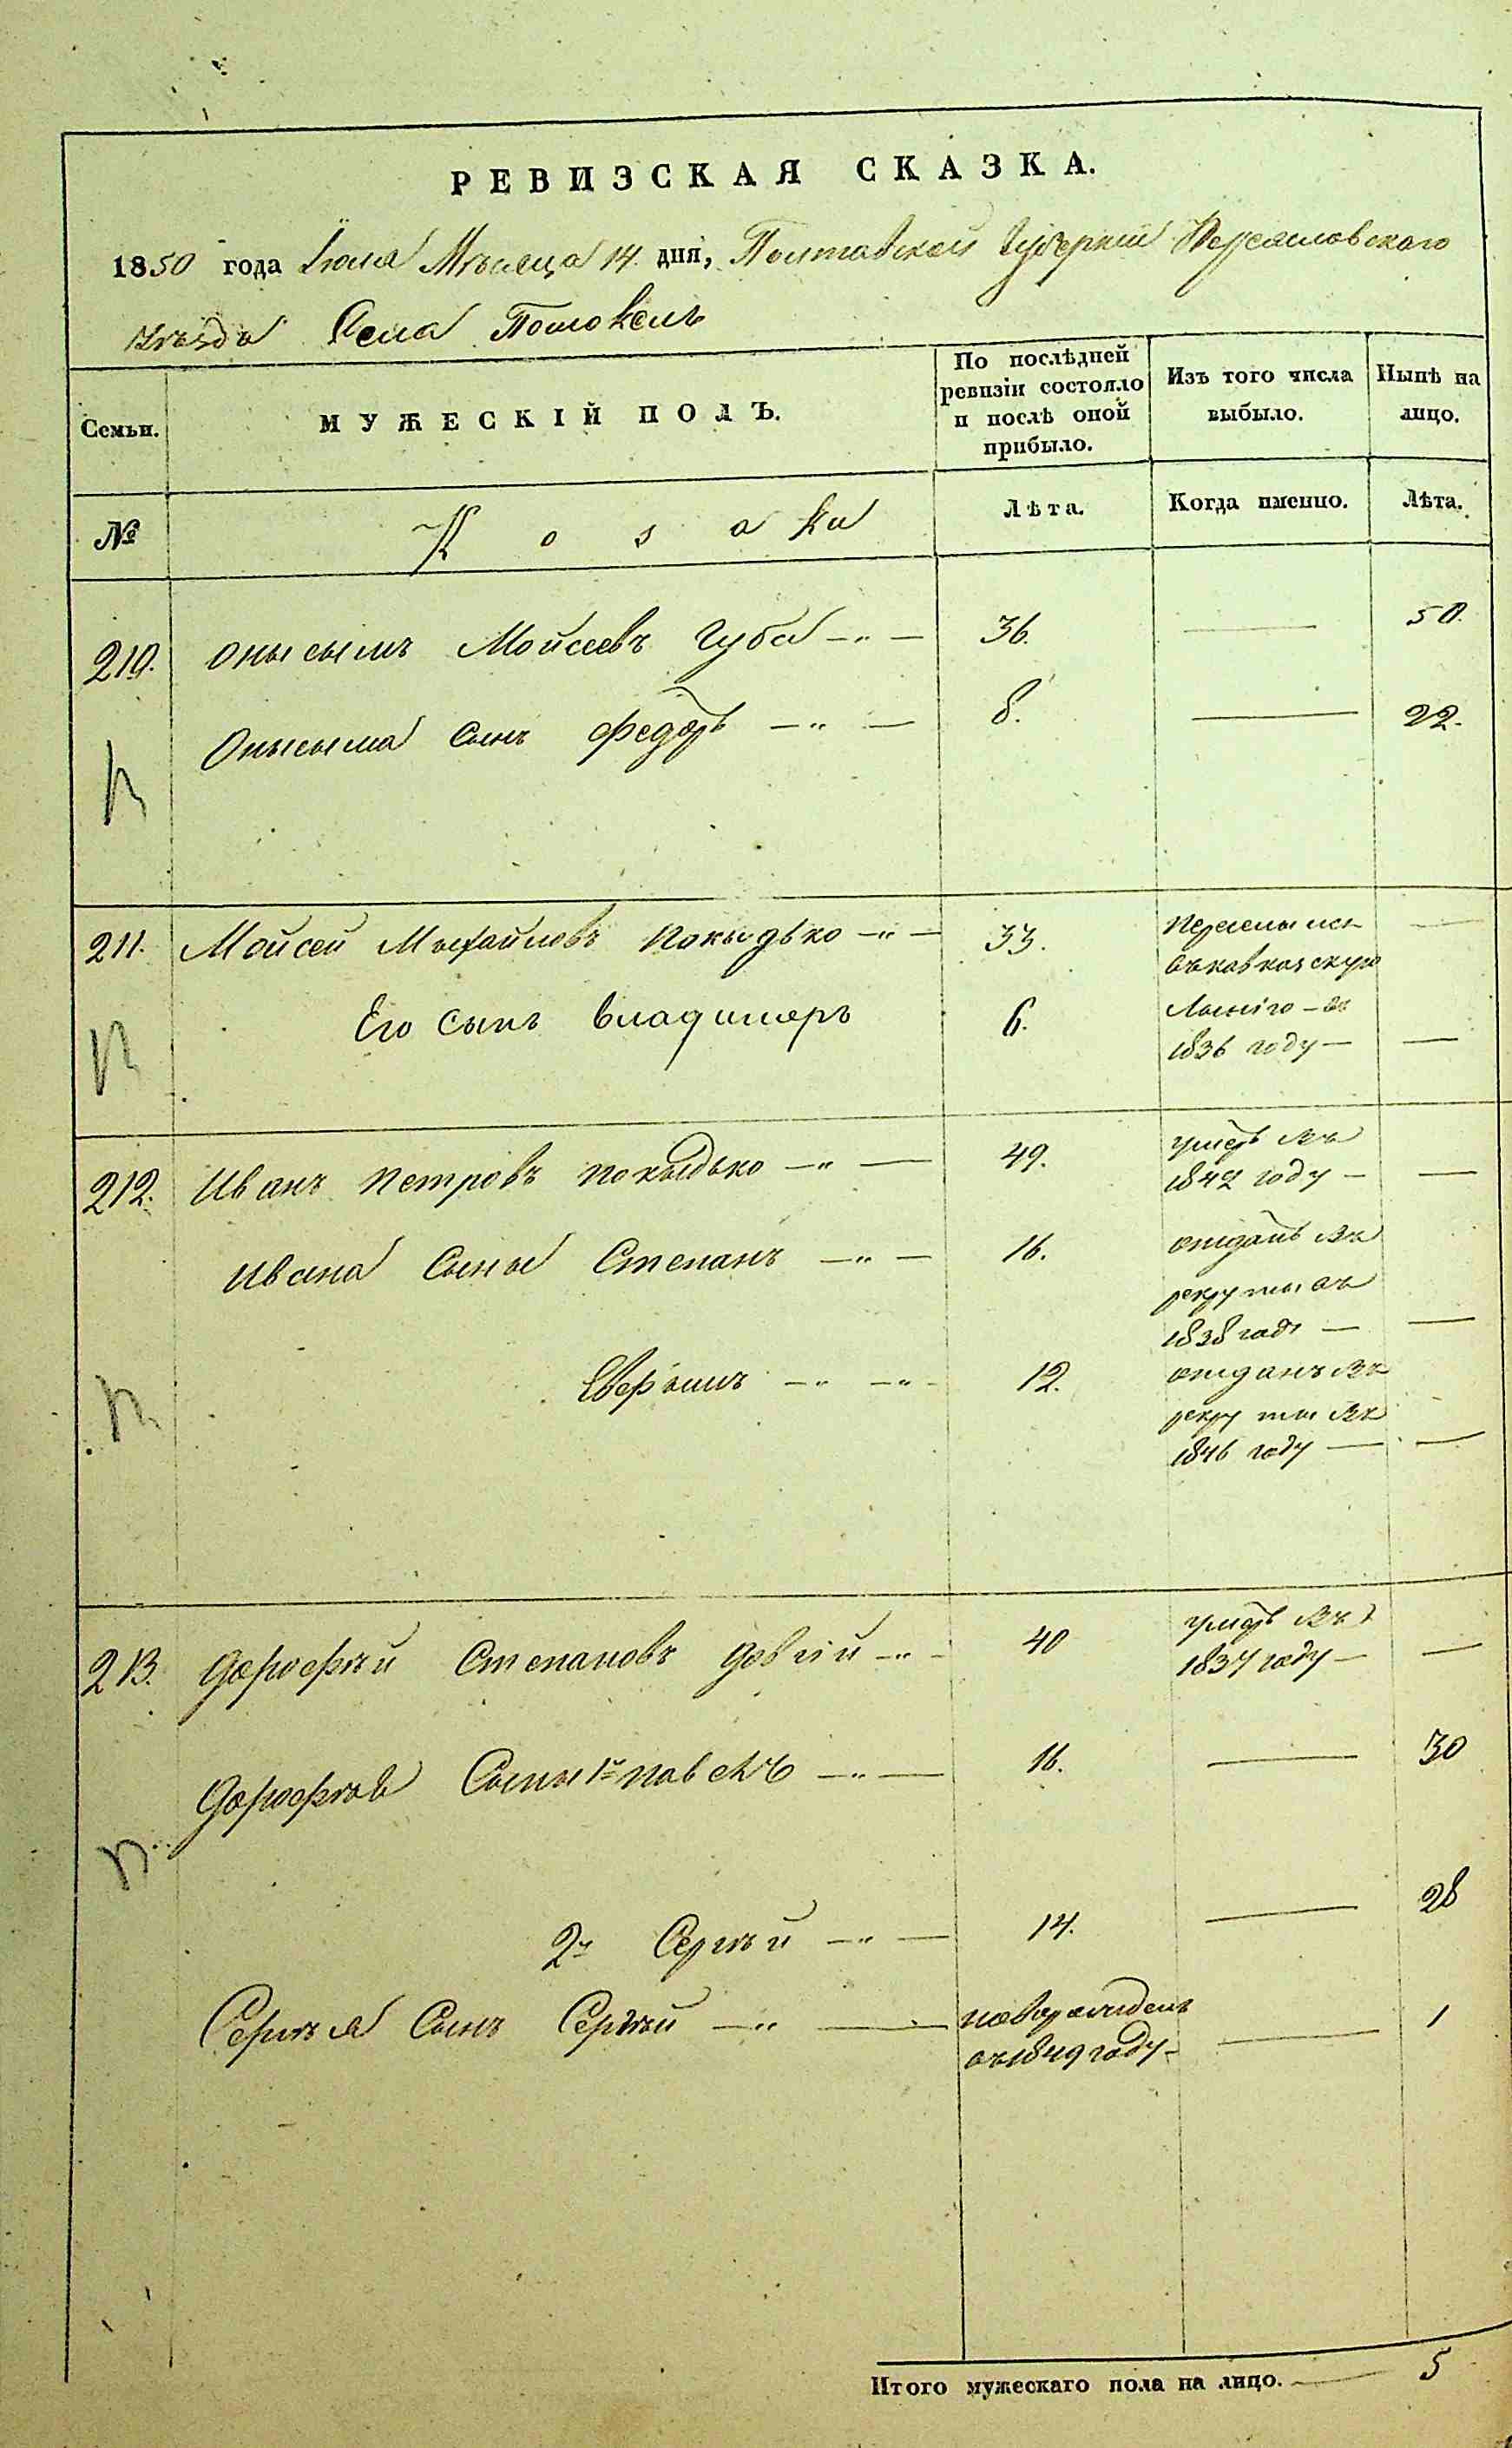 РЕВИЗСКАЯ СКАЗКА.
1850 года Іюля Мѣсяца 14 дня, Полтавской Губерніи Переясловского
уѣзда Села Помоклъ
Семьи.
МУЖЕСКІЙ ПОЛЪ.
По послѣдней ревизіи состояло и послѣ оной прибыло.
Изъ того числа выбыло.
Нынѣ на лицо.
№
Козаки
Лѣта.
Когда именно.
Лѣта.
210. Онысымъ Мойсеевъ Губа —„— 36. — 50.
Онысыма сынъ Федоръ —„— 8. — 22.
211. Мойсей Михайловъ Покидько —„— 33. —
въ кавказскую
Его сынъ Владимеръ 6.
Линію — въ
1836 году — —
212. Иванъ Петровъ Покидько —„— 49. умеръ въ
1842 году — —
Ивана сыны Степанъ —„— 16. отданъ въ
рекруты въ
1838 годѣ — —
12. отданъ въ
рекруты въ
1846 году — —
213. Дорофѣй Степановъ Довгій —„— 40 умеръ въ
1837 году — —
Дорофѣя Сыны 1й Павелъ —„— 16. — 30
2й Сергѣй —„— 14. — 28
Сергѣя Сынъ Сергѣй —„— новорожденъ — 1
въ 1849 году —
Итого мужескаго пола на лицо. — 5